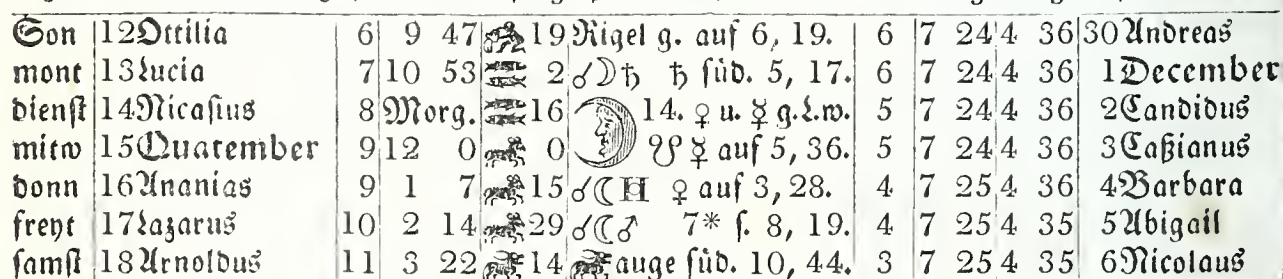 Son 12 Ottilia 6 9 47 19 Rigel g. auf 6, 19. 6 7 24 4 36 30 Andreas
mont 13 Lucia 7 10 53 2 ☌☽♄ ♄ süd. 5, 17. 6 7 24 4 36 1 December
dienst 14 Nicasius 8 Morg. 16 14. ♀ u. ☿ g.L.w. 5 7 24 4 36 2 Candidus
mitw 15 Quatember 9 12 0 0 ☿ auf 5, 36. 5 7 24 4 36 3 Caßianus
donn 16 Ananias 9 1 7 15 ☌☾ ♀ auf 3, 28. 4 7 25 4 36 4 Barbara
freyt 17 Lazarus 10 2 14 29 ☌☾♂ 7* s. 8, 19. 4 7 25 4 35 5 Abigail
samst 18 Arnoldus 11 3 22 14 auge süd. 10, 44. 3 7 25 4 35 6 Nicolaus